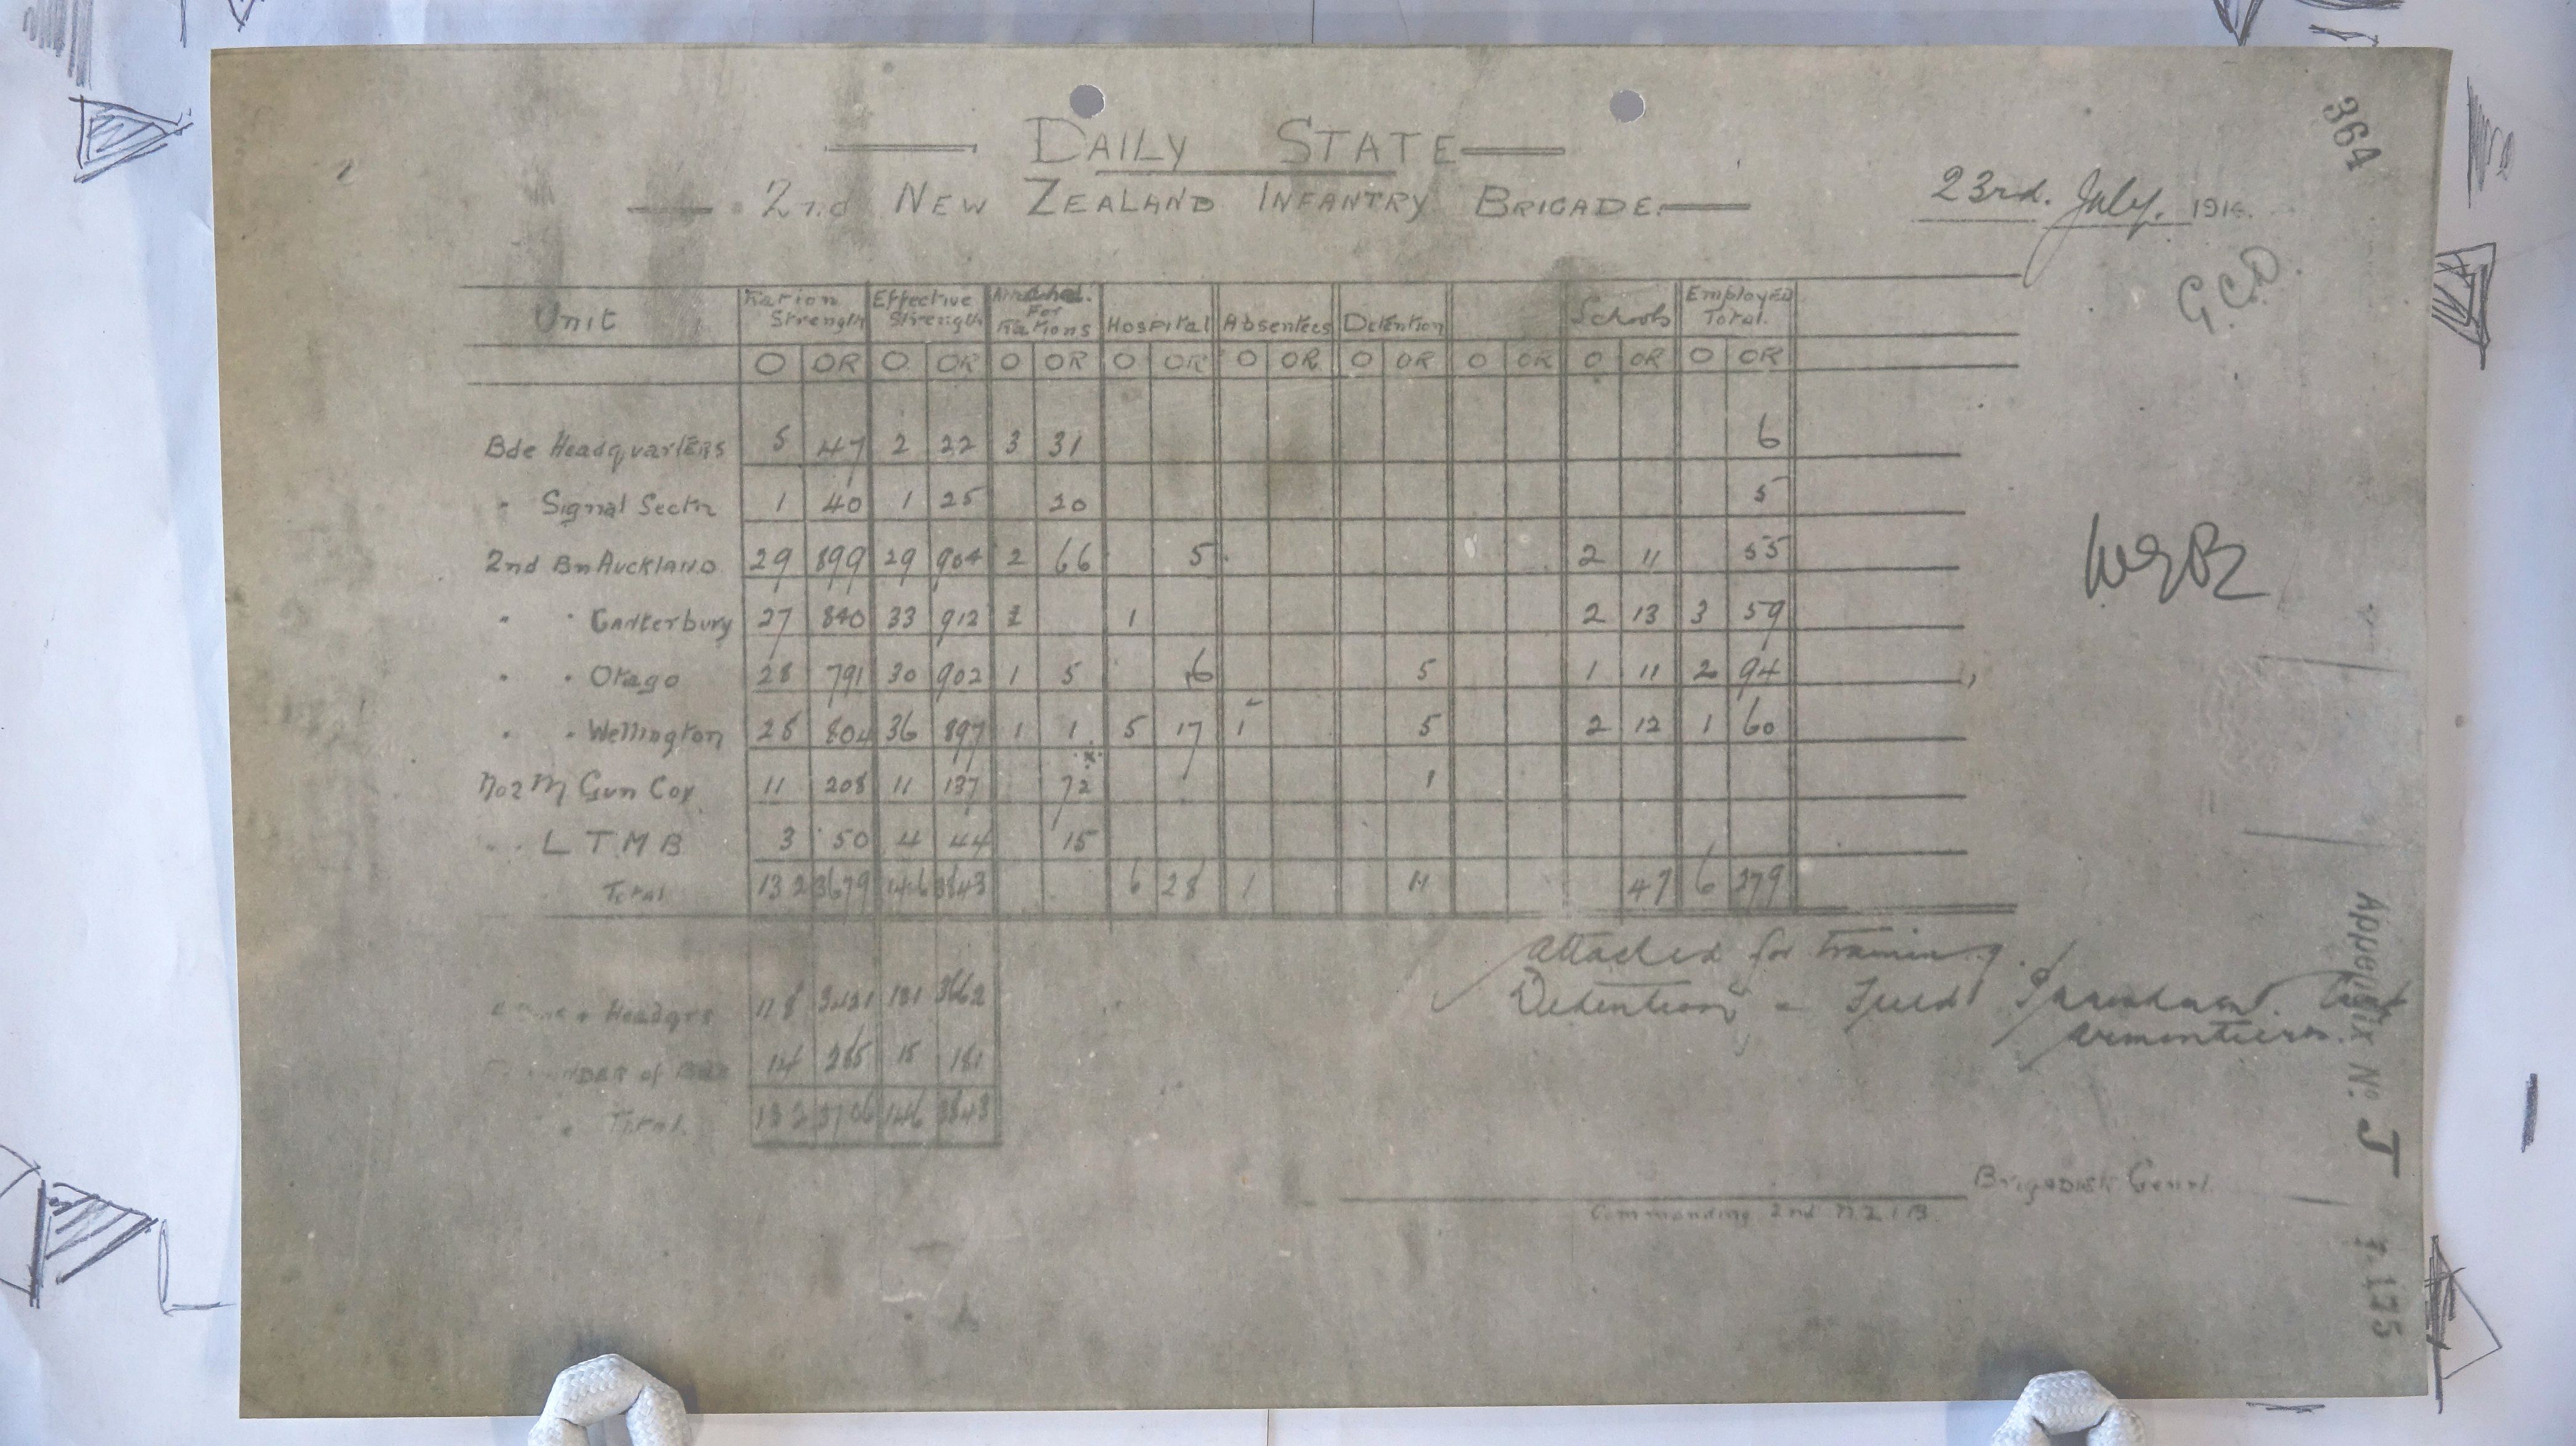 364
DAILY STATE
2nd NEW ZEALAND INFANTRY BRIGADE.
23rd. July. 1916.
G.C.O.
Unit Ration Strength Effective Strength Attached For Rations Hospital Absentees Detention Schools Employed Total.
O OR O OR O OR O OR O OR O OR O OR O OR O OR
Bde Headquarters 5 47 2 22 3 31 6
" Signal Sectn 1 40 1 25 20 5
2nd Bn Auckland 29 899 29 904 2 66 5 2 11 55
" " Canterbury 27 840 33 912 1 2 13 3 59
" " Otago 28 791 30 902 1 5 6 5 1 11 2 94
" " Wellington 28 804 36 897 1 1 5 17 1 5 2 12 1 60
No 2 M Gun Coy 11 208 11 137 72 1
" " L T M B 3 50 4 44 15
Total 132 3679 146 3843 6 28 1 11 47 6 279
Headqrs 118 3421 131 3662
of Bde 14 285 15 181
" Total. 132 3706 146 3843
attached for training.
Detention = Field
Armentieres.
Brigadier Genrl.
Commanding 2nd N.Z.I.B.
Appendix No. J